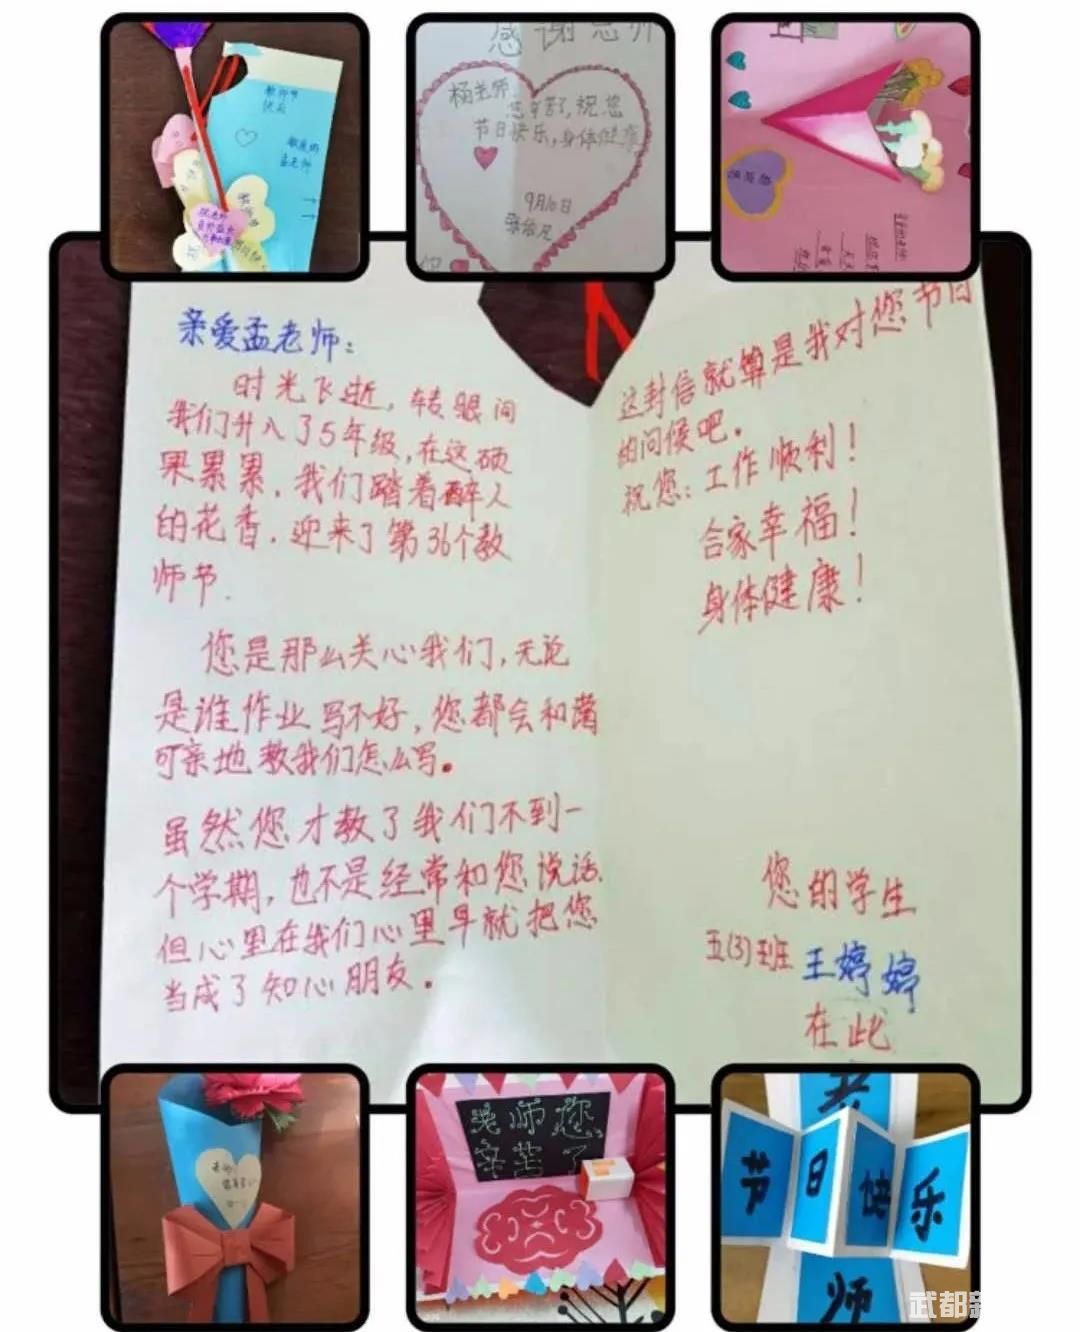 教师节
快乐
敬爱的
孟老师
感谢恩师
杨老师
您辛苦了,祝您
节日快乐,身体健康
9月10日
亲爱孟老师:
时光飞逝,转眼间
我们升入了5年级,在这硕
果累累,我们踏着醉人
的花香,迎来了第36个教
师节.
您是那么关心我们,无论
是谁作业写不好,您都会和蔼
可亲地教我们怎么写。
虽然您才教了我们不到一
个学期,也不是经常和您说话.
但心里在我们心里早就把您
当成了知心朋友。
这封信就算是我对您节日
的问候吧。
祝您:工作顺利!
合家幸福!
身体健康!
您的学生
五(3)班 王婷婷
在此
老师您
辛苦了
节日快乐
师
武都新